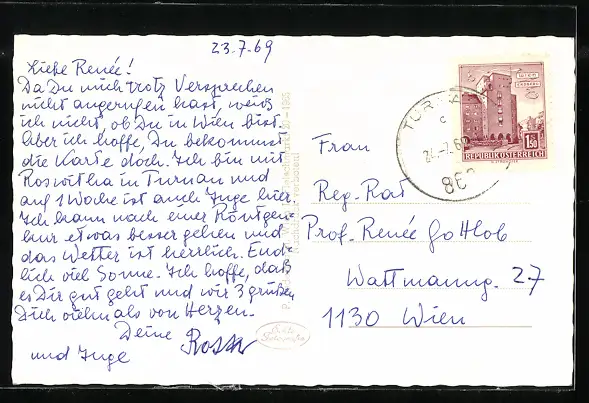 23.7.69
Liebe Renée!
Da Du mich trotz Versprechen
nicht angerufen hast, weiß
ich nicht, ob Du in Wien bist.
Aber ich hoffe, Du bekommst
die Karte doch. Ich bin mit
Roswitha in Turnau und
auf 1 Woche ist auch Inge hier.
Ich kann nach einer Röntgen-
kur etwas besser gehen und
das Wetter ist herrlich. End-
lich viel Sonne. Ich hoffe, daß
es Dir gut geht und wir 3 grüßen
Dich vielmals von Herzen.
Deine
und Inge
WIEN
1.50
REPUBLIK ÖSTERREICH
Frau
Reg. Rat
Prof. Renée Gottlob
Wattmanng. 27
1130 Wien